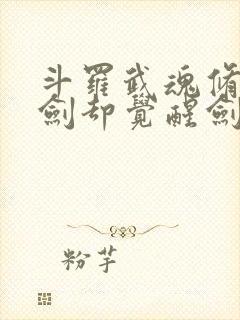 斗羅武魂脩
劍却覺醒劍
粉芋